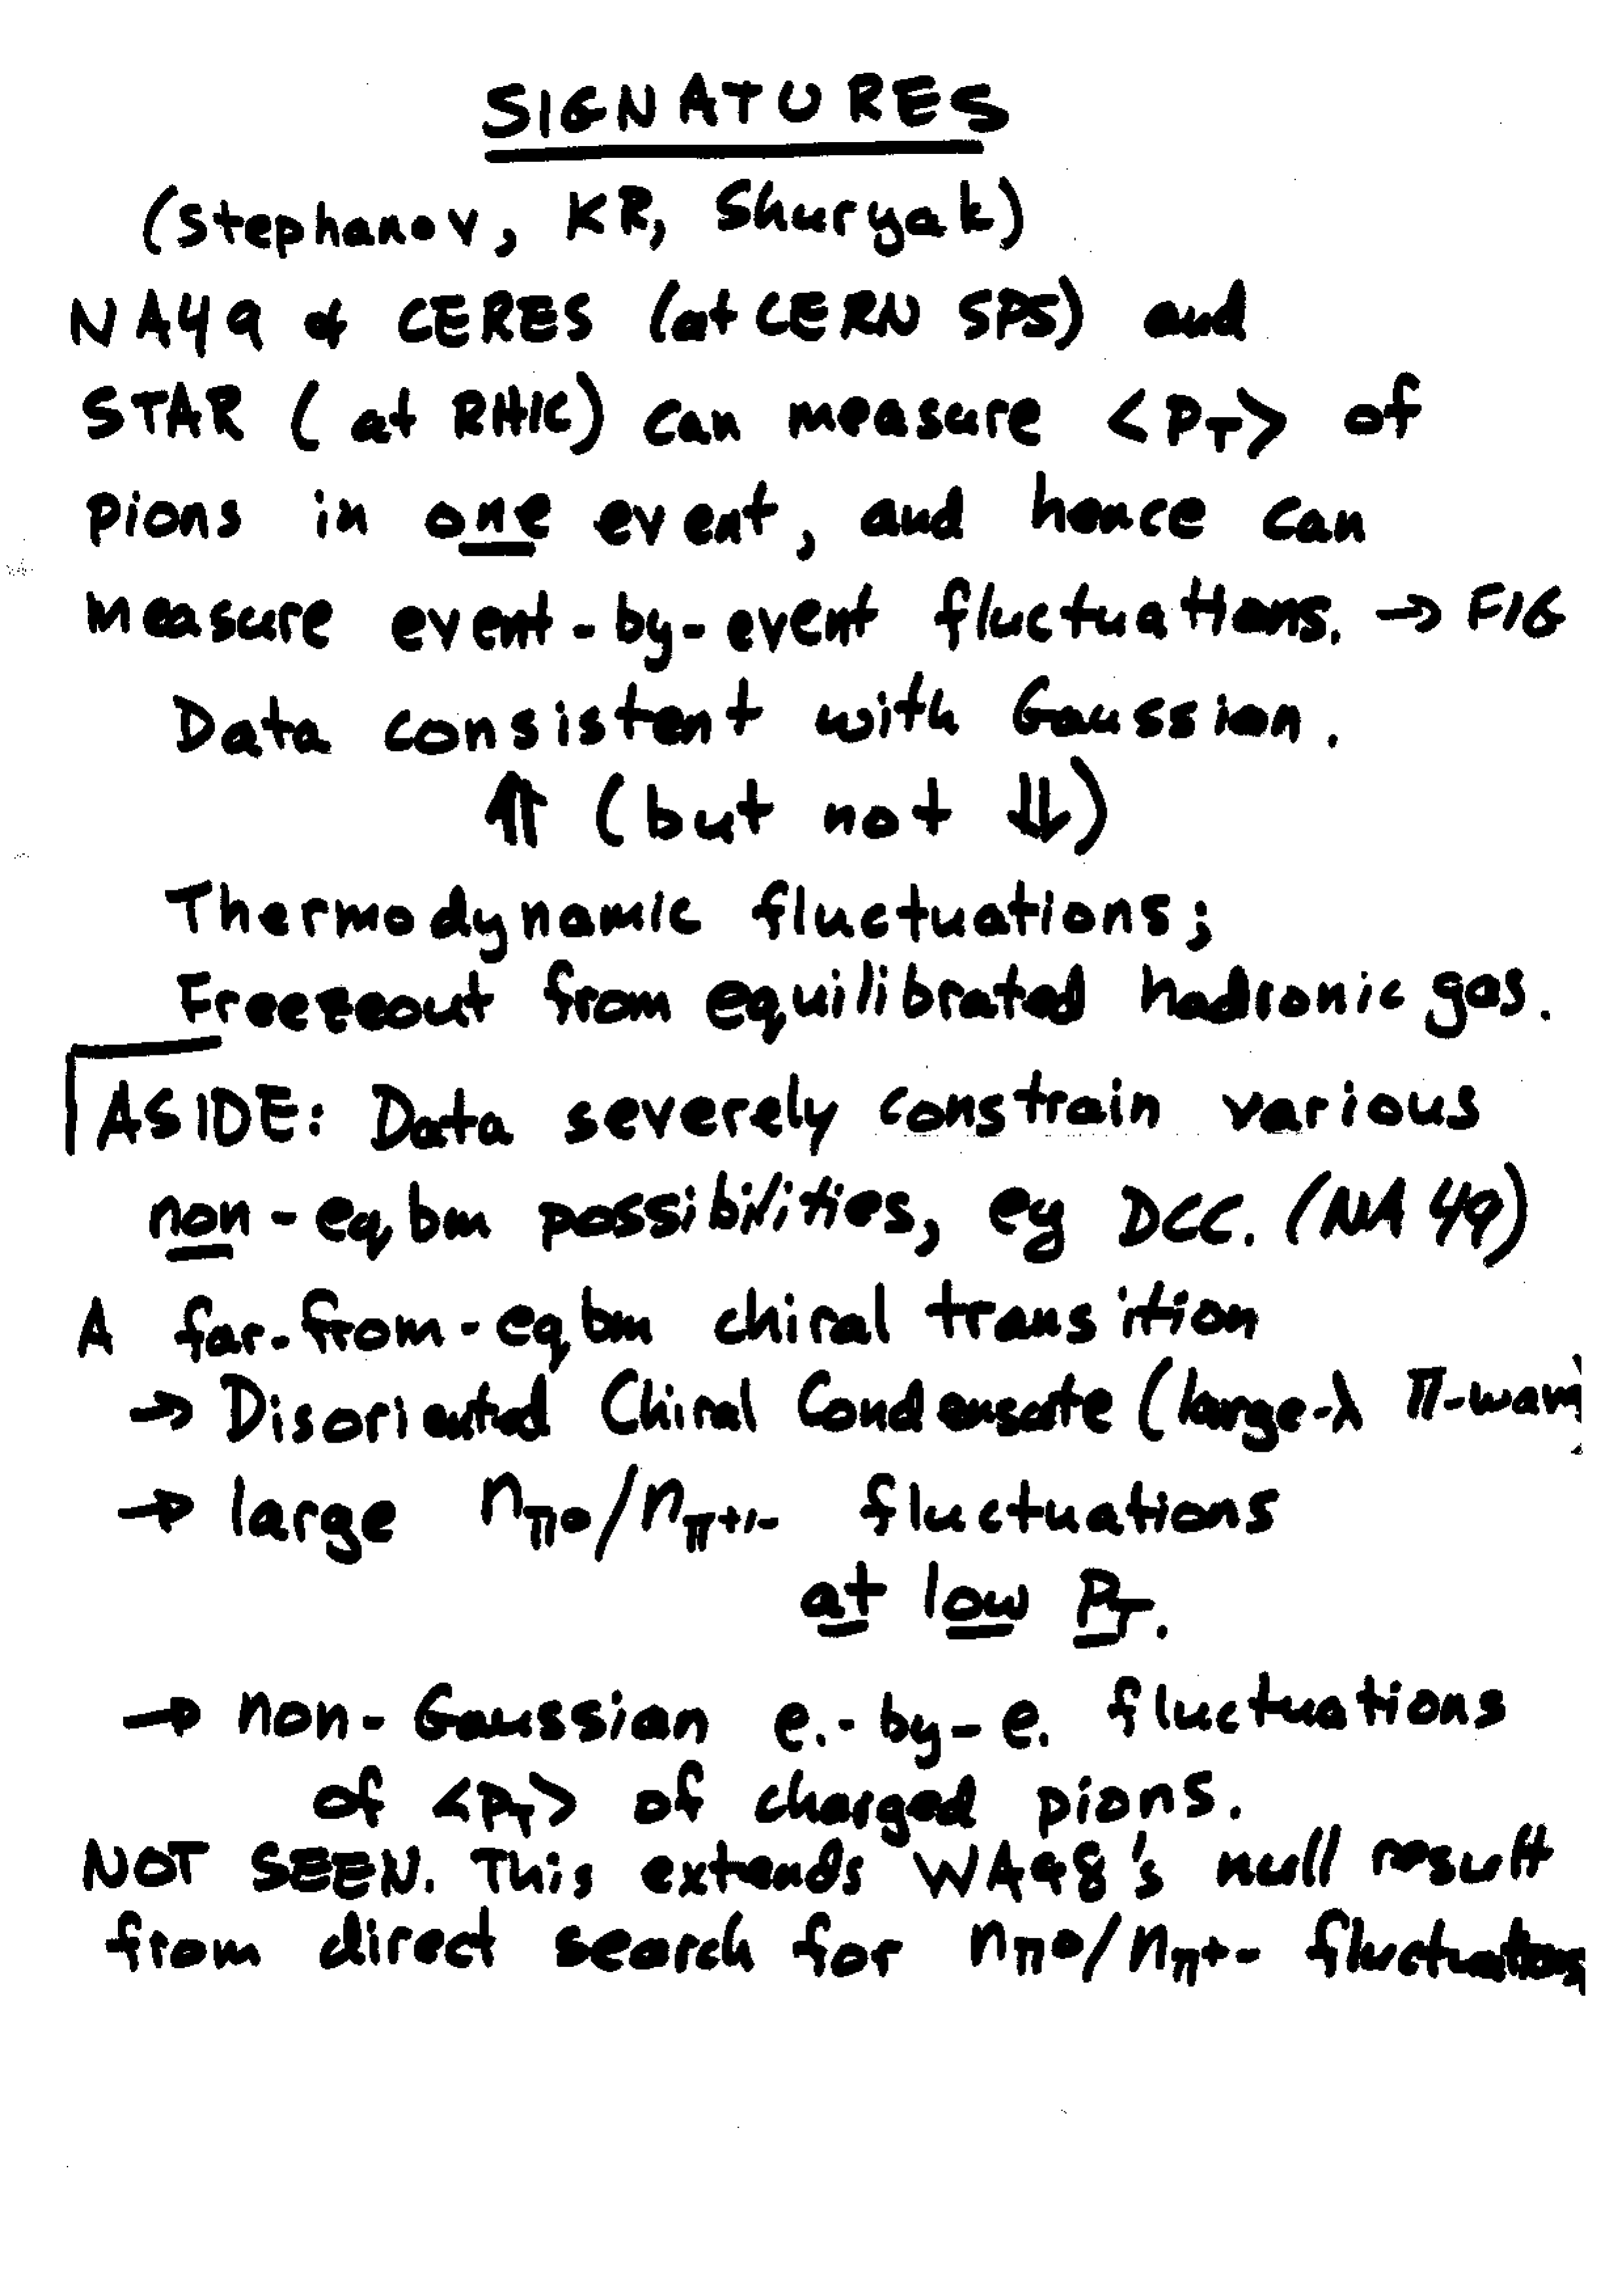 SIGNATURES
(Stephanov, KR, Shuryak)
NA49 & CERES (at CERN SPS) and
STAR (at RHIC) can measure <P_T> of
pions in one event, and hence can
measure event-by-event fluctuations. → FIG
Data consistent with Gaussian.
⇑ (but not ⇓)
Thermodynamic fluctuations;
Freezeout from equilibrated hadronic gas.
ASIDE: Data severely constrain various
non-eqbm possibilities, eg DCC. (NA49)
A far-from-eqbm chiral transition
→ Disoriented Chiral Condensate (large-λ π-wave)
→ large n_π0/n_π+/- fluctuations
at low P_T.
→ non-Gaussian e.-by-e. fluctuations
of <P_T> of charged pions.
NOT SEEN. This extends WA98's null result
from direct search for n_π0/n_π+- fluctuations